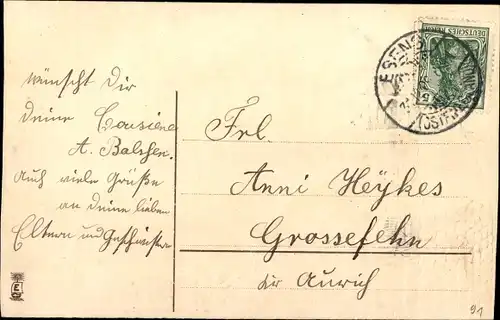 wünscht Dir
Deine Cousine
A. Balssen.
Auch viele Grüße
an Deine lieben
Eltern und Geschwister
Frl.
Anni Heykes
Grossefehn
bei Aurich
DEUTSCHES REICH
ESENS
91